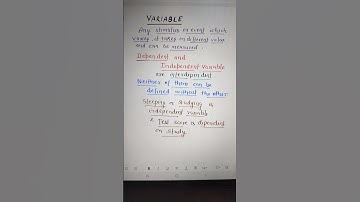 VARIABLE
Any stimulus or event which
varies, it takes on different value
and can be measured
Dependent and
Independent variable
are interdependent
Neither of them can be
defined without the other
Sleeping or studying is
independent variable
& Test score is dependent
on study